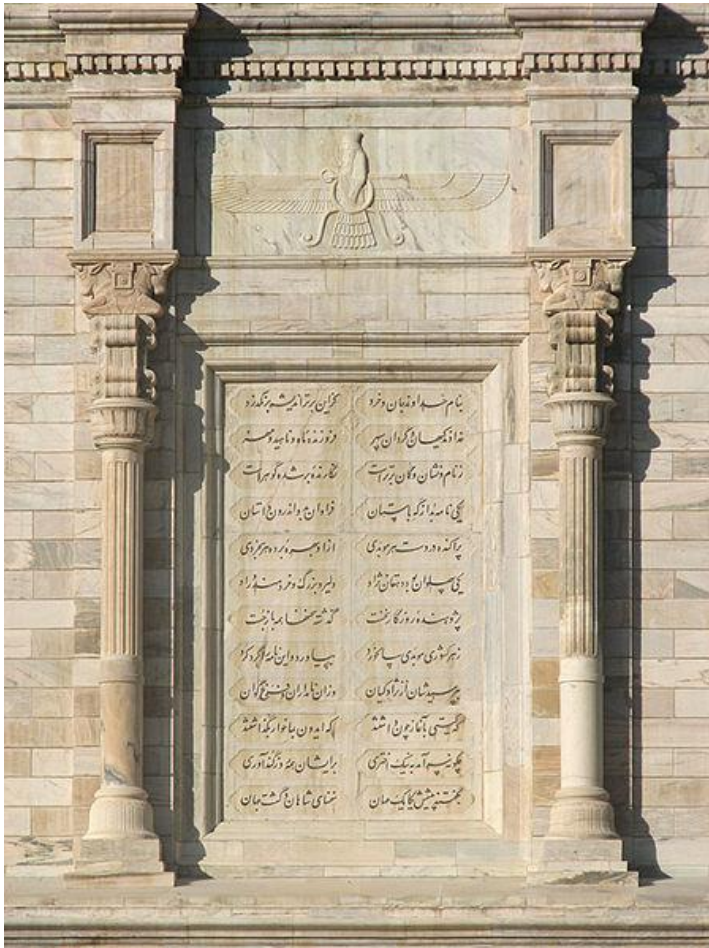 بنام خداوند جان و خرد کزین برتر اندیشه برنگذرد
خداوند کیهان و گردان سپهر فروزنده ماه و ناهید و مهر
ز نام و نشان و گمان برتر است نگارنده بر شده گوهر است
یکی نامه بد از گه باستان فراوان بدو اندرون داستان
پراکنده در دست هر موبدی ازو بهره برده هر بخردی
یکی پهلوان بود دهقان نژاد دلیر و بزرگ و خردمند و راد
پژوهنده روزگار نخست گذشته سخنها همه باز جست
ز هر کشوری موبدی سالخورد بیاورد و این نامه را گرد کرد
بپرسیدشان از نژاد کیان وزان نامداران و فرخ گوان
که گیتی بآغاز چون داشتند که ایدون بما خوار بگذاشتند
چگونه سر آمد به نیک اختری برایشان همه روز گندآوری
بگفتند پیشش یکایک مهان سخنهای شاهان و گشت جهان